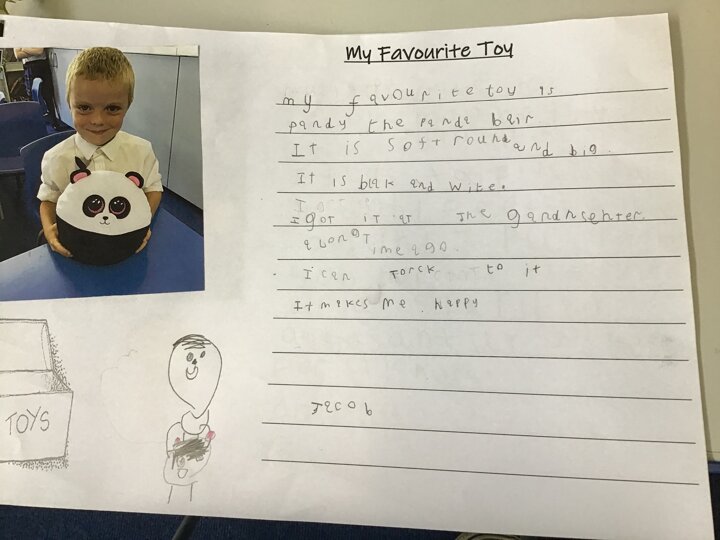 My Favourite Toy
my favourite toy is
pandy the panda bair
It is soft round and big.
It is blak and wite.
I got it at the gardncenter.
a long time ago.
I can torck to it
It makes me happy
Jacob
TOYS